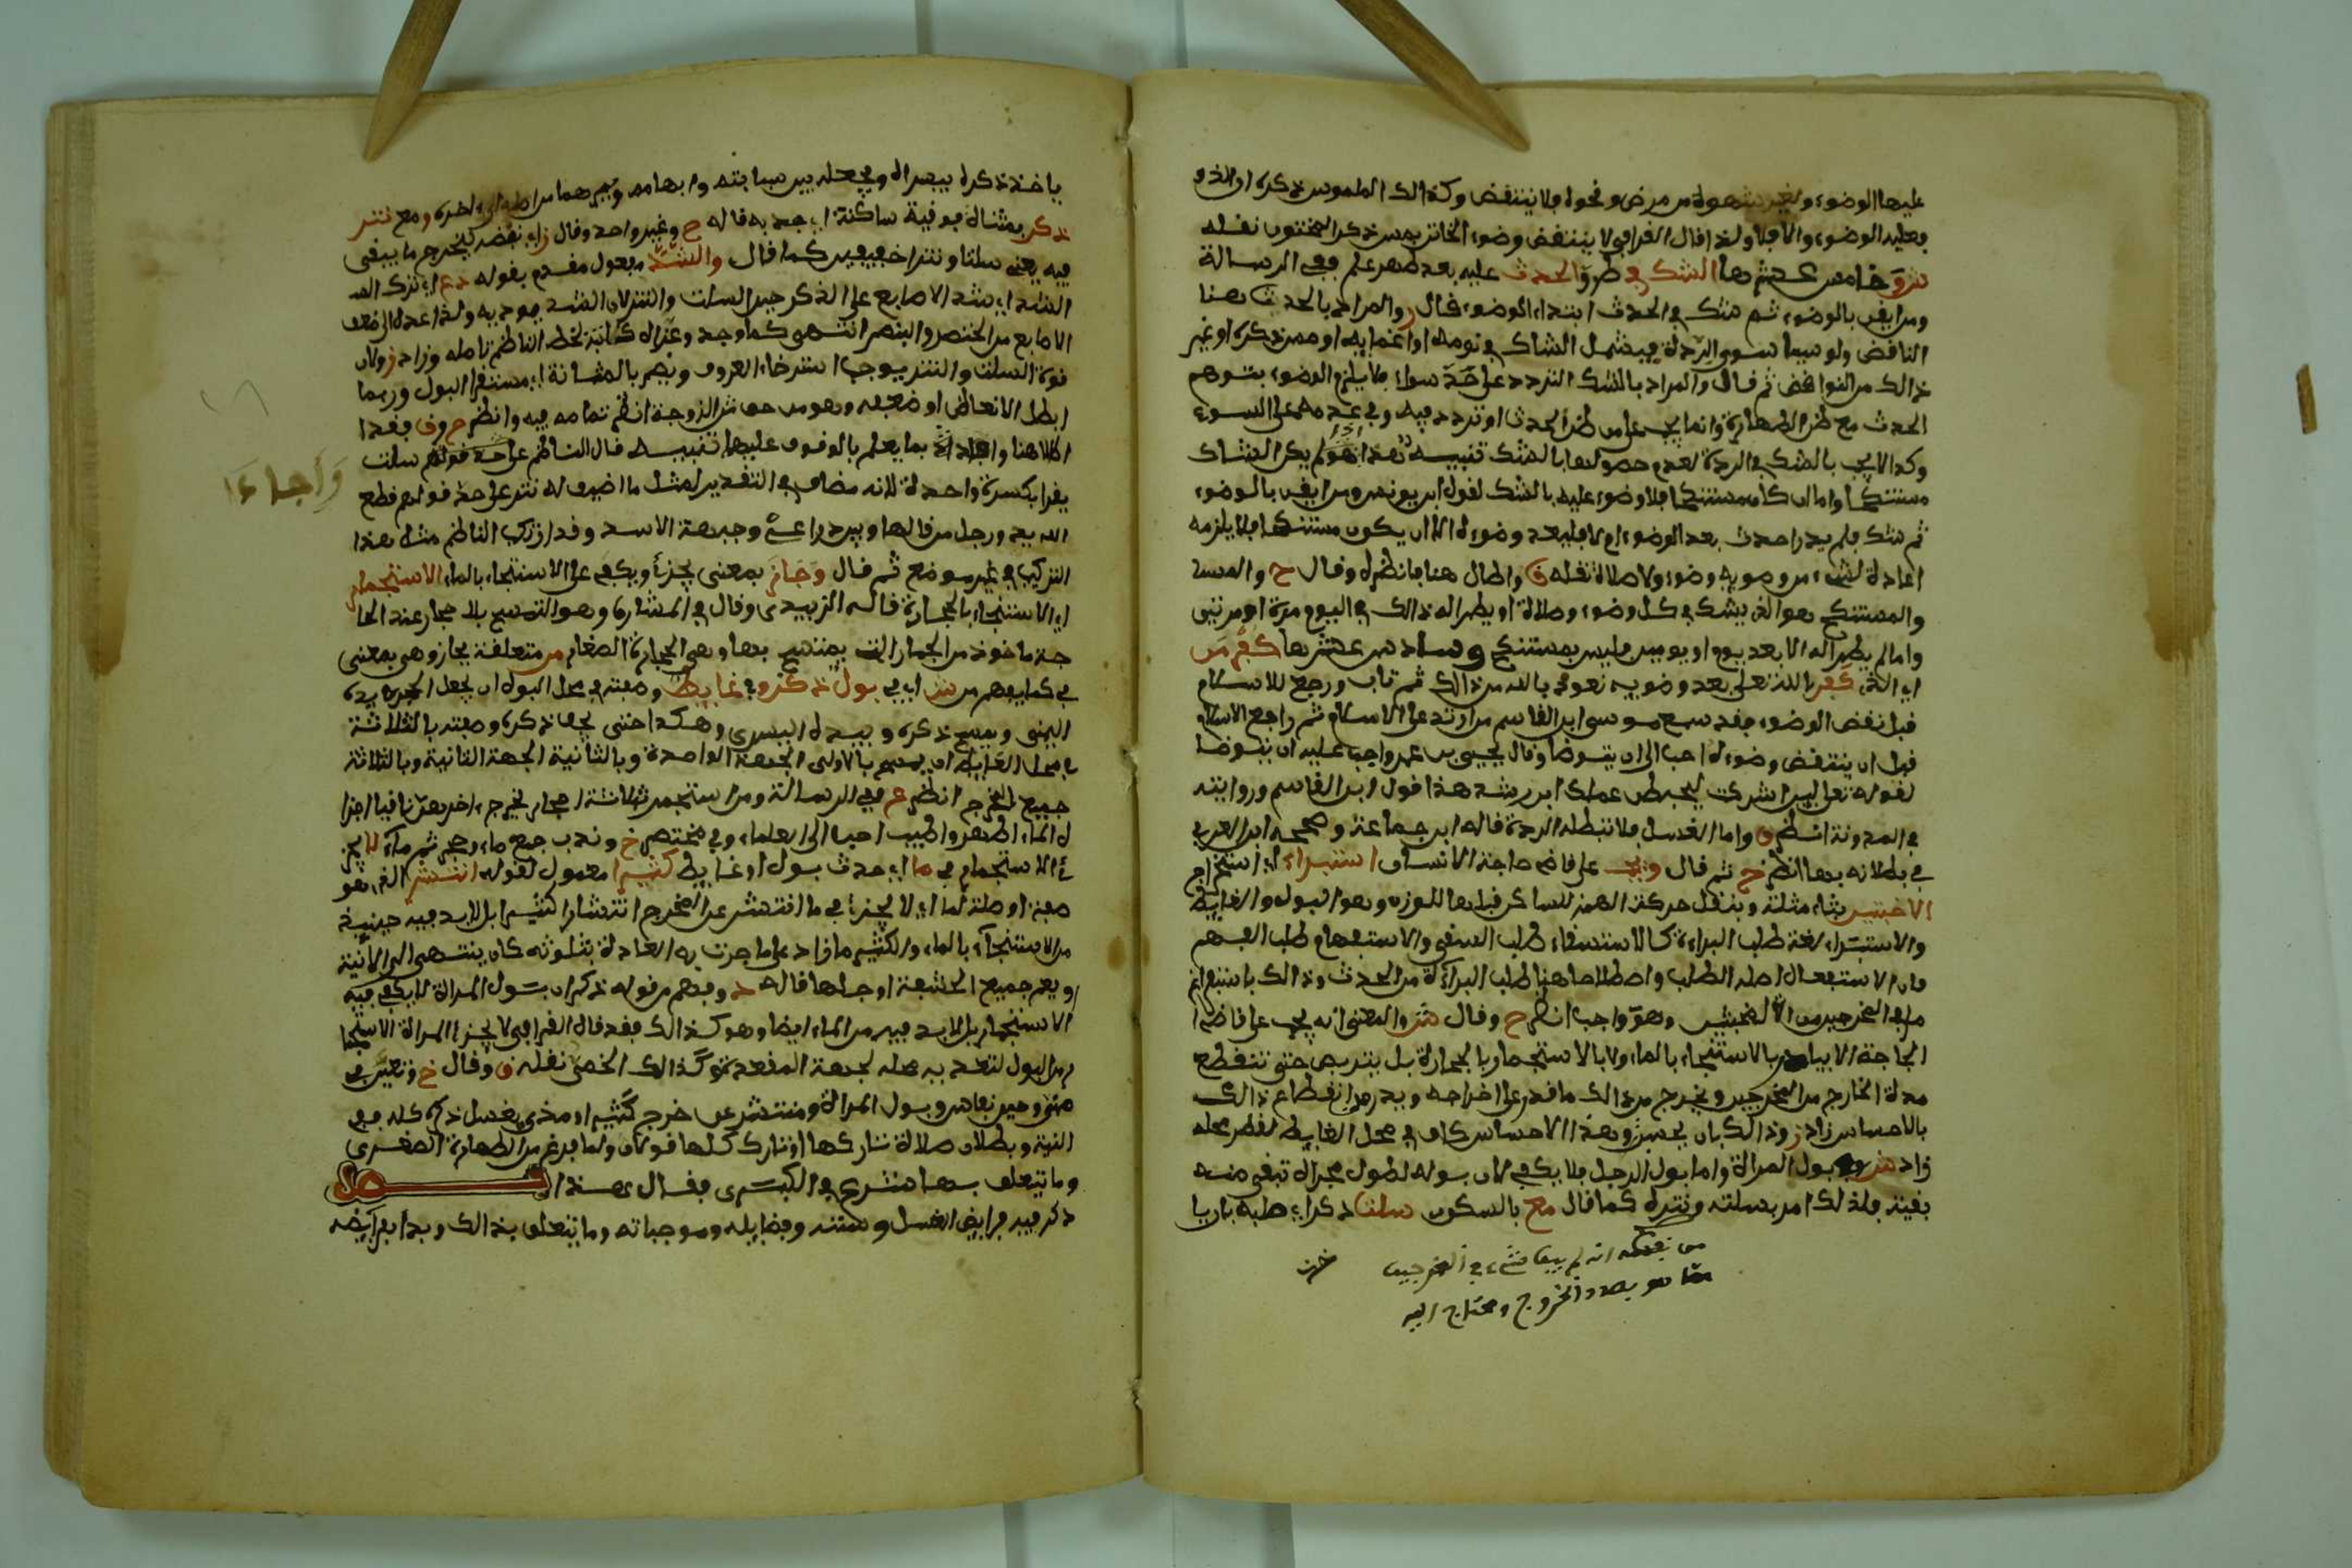 عليها الوضوء ولغير شهوة من مرض ونحوه فلا ينتقض وكذالك الملموس ذكره ان التذ
فعليه الوضوء والا فلا ولذا قال القرافي لا ينتقض وضوء الخاتن بمس ذكر المختون نقله
شر وخامس عشرها الشك في طرو الحدث عليه بعد طهر علم ففي الرسالة
ومن ايقن بالوضوء ثم شك في الحدث ابتدا الوضوء قال ز والمراد بالحدث هنا
الناقض ولو سببا سوى الردة فيشمل الشاك في نومه او اغمايه او مس ذكره او غير
ذالك من النواقض ثم قال والمراد بالشك التردد على حد سواء فلا يلزم الوضوء بتوهم
الحدث مع ظن الطهارة وانما يجب على من ظن الحدث او تردد فيه وفي عدمه على السوى
وكذا لا يجب بالشك في الردة لعدم حصولها بالشك تنبيه هذا لم يكن الشاك
مستنكحا واما ان كان مستنكحا فلا وضوء عليه بالشك لقول ابن يونس ومن ايقن بالوضوء
ثم شك فلم يدر احدث بعد الوضوء ام لا فليعد وضوءه الا ان يكون مستنكحا فلا يلزمه
اعادة لشيء من وضوء ولا صلاة نقله ق واطال هنا فانظره وقال ح
والمستنكح هو الذي يشك في كل وضوء وصلاة او يطرا له ذالك في اليوم مرة او مرتين
واما لم يطرا له الا بعد يوم او يومين فليس بمستنكح وسادس عشرها كفر من
اي الذي كفر بالله تعلى بعد وضوءيه نعوذ بالله من ذالك ثم تاب ورجع للاسلام
قبل نقض الوضوء فقد سمع موسى ابن القاسم من ارتد عن الاسلام ثم راجع الاسلام
قبل ان ينتقض وضوءه احب الى ان يتوضا وقال يحيى بن عمر واجب عليه ان يتوضا
لقوله تعلى لين اشركت ليحبطن عملك ابن رشد هذا قول ابن القاسم وروايته
في المدونة انظر ق واما الغسل فلا تبطله الردة قاله ابن جماعة وصححه ابن العربي
في بطلانه بها انظر ح ثم قال ويجب على قاضي حاجة الانسان استبراء اي استخراج
الاخبثين بثاء مثلثة وبنقل حركة الهمز للساكن قبلها للوزن وهو البول والغايط
والاستبراء لغة طلب البراءة كالاستسقاء طلب السقي والاستفهام طلب الفهم
فان الاستفعال اصله الطلب واصطلاحا هنا طلب البراءة من الحدث وذالك باستفراغ
ما في المخرجين من الاخبثين وهو واجب انظر ح وقال شر والمعنى انه يجب على قاضي
الحاجة الا يبادر بالاستنجاء بالماء ولا بالاستجمار بالحجارة بل يتربص حتى تنقطع
مدة الخارج من المخرجين ويخرج من ذالك ما قدر على اخراجه ويدرك انقطاع ذالك
بالاحساس زاد ز وذالك بان يحس وهذا الاحساس كاف في محل الغايط لقصر محله
زاد شر وفي بول المراة واما بول الرجل فلا يكفي لان بوله لطول مجراه تبقى منه
بقية فلذلك امر بسلته ونتره كما قال مع بالسكون سلت ذكر اي صلبه بان
من نفسه انه لم يبق شيء في المخرجين
مما هو بصدد الخروج ومحتاج اليه
ياخذ ذكره بيسراه ويجعله بين سبابته وابهامه ويمرهما من اصله الى اخره ومع نتر
ذكر بمثناة فوقية ساكنة اي جذبه قاله ح وغير واحد وقال ز اي نفضه ليخرج ما يبقى
فيه يعني سلتا ونترا خفيفين كما قال والشد مفعول مقدم بقوله دع اي اترك
الشد اي شد الاصابع على الذكر حين السلت والنتر لان الشد
الاصابع من الخنصر والبنصر انتهى كما وجد وعزاه كتابة بخط الناظم تامله وزاد ز ولان
قوة السلت والنتر يوجب استرخاء العروق ويضر بالمثانة اي مستقر البول وربما
ابطل الانعاظ او ضعفه وهو من حق الزوجة انظر تمامه فيه وانظر ح وق فقد
اطالا هنا بما يعلم بالوقوف عليهما تنبيه قال الناظم على حد قولهم سلت
يقرا بكسرة واحدة لانه مضاف في التقدير لمثل ما اضيف له نتر على حد قولهم قطع
الله يد ورجل من قالها وبين ذراعي وجبهة الاسد وقد ارتكب الناظم مثل هذا
التركيب في غير موضع ثم قال وجاز بمعنى يجزا ويكفي عن الاستنجاء بالماء الاستجمار
اي الاستنجاء بالحجارة قاله الزبيدي وقال في المشارق وهو التمسح بالاحجار عند الحا
جة ماخوذ من الجمار التي يتمسح بها وهي الحجارة الصغار من متعلقة بجاز وهي بمعنى
في كما يفهم من شر اي في بول ذكر وفي غايط وصفته في محل البول ان يجعل الحجر بيده
اليمنى ويمسح ذكره وبيده اليسرى وهكذا حتى يجف ذكره وصفته بالثلاثة
في محل الغايط ان يمسح بالاولى الجهة الواحدة وبالثانية الجهة الثانية وبالثالثة
جميع المخرج انظر ح ففي الرسالة ومن استجمر بثلاثة احجار يخرج اخرهن نقيا اجزا
ه والماء اطهر واطيب احب الى العلماء وفي مختصر خ وندب جمع ماء وحجر ثم ماء لا يجز
ئ الاستجمار في ما اي حدث بول او غايط كثيرا معمول لقوله انتشر الذي هو
صفة او صلة لما اي لا يجزئ في ما انتشر عن المخرج انتشارا كثيرا بل لا بد فيه حينيذ
من الاستنجاء بالماء والكثير ما زاد على ما جرت به العادة بتلوثه كان ينتهي الى الالية
او يعم جميع الحشفة او جلها قاله ح وفهم من قوله ذكر ان بول المراة لا يكفي فيه
الاستجمار بل لا بد فيه من الماء ايضا وهو كذالك فقد قال القرافي لا يجزئ المراة الاستجما
ر من البول لتعديه محله لجهة المقعدة وكذالك الخصي نقله ق وقال خ وتعين في
مني وحيض ونفاس وبول المراة ومنتشر عن مخرج كثيرا ومذي بغسل ذكره كله ففي
النية وبطلان صلاة تاركها او تارك كلها قولان ولما فرغ من الطهارة الصغرى
وما يتعلق بها شرع في الكبرى فقال هذا فصل
ذكر فيه فرايض الغسل وسننه وفضايله وموجباته وما يتعلق بذالك وبدا بفرايضه